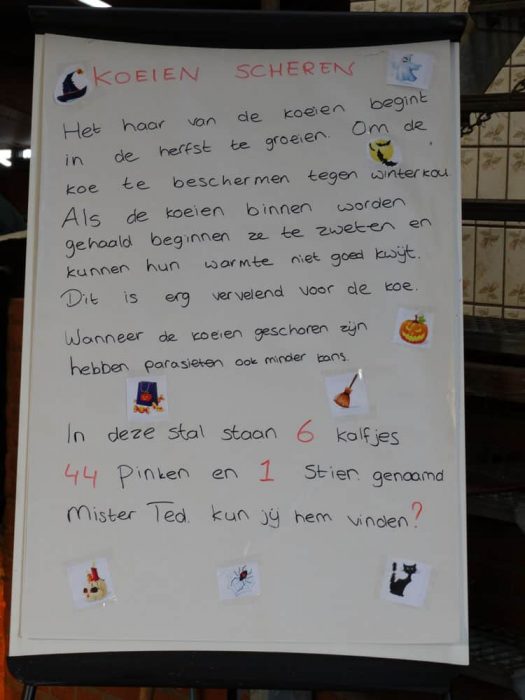 KOEIEN SCHEREN
Het haar van de koeien begint
in de herfst te groeien. Om de
koe te beschermen tegen winterkou
Als de koeien binnen worden
gehaald beginnen ze te zweten en
kunnen hun warmte niet goed kwijt.
Dit is erg vervelend voor de koe.
Wanneer de koeien geschoren zijn
hebben parasieten ook minder kans.
In deze stal staan 6 kalfjes
44 Pinken en 1 Stier. genaamd
Mister Ted. kun jij hem vinden?